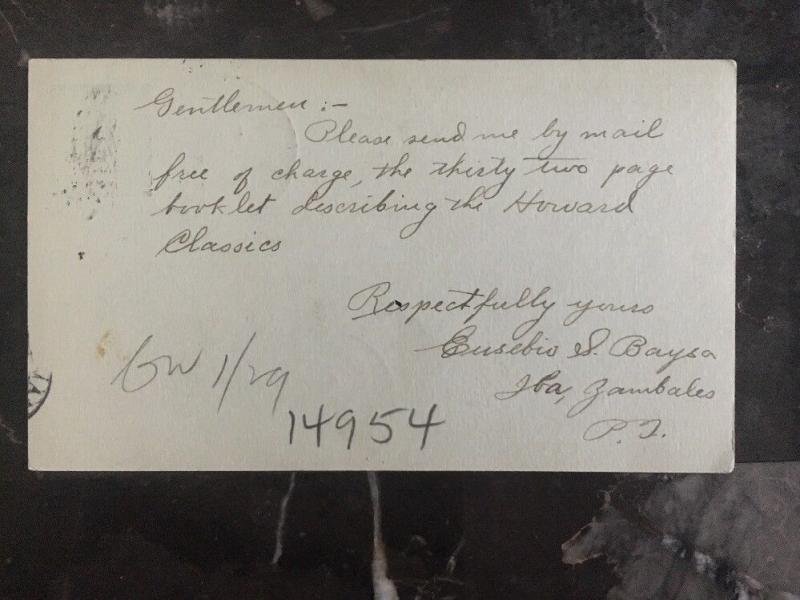 Gentlemen :-
Please send me by mail
free of charge, the thirty two page
booklet describing the Howard
Classics
Respectfully yours
Eusebio S. Baysa
Iba, Zambales
P.I.
GW 1/29
14954